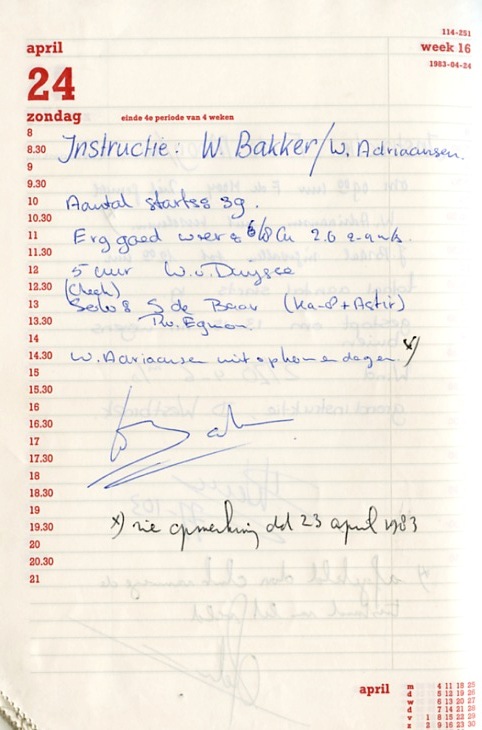 114-251
april
week 16
24
1983-04-24
zondag
einde 4e periode van 4 weken
8
8.30 Instructie: W. Bakker/W. Adriaansen.
9
9.30
10 Aantal starts 39.
10.30
11 Erg goed weer 6/8 Cu
11.30
12 5 uur W. v. Duysee
12.30 (Check)
13 Solo's S de Boer (Ka-8 + Astir)
13.30 Egmon.
14
14.30 W. Adriaansen uit ophomendagen. x)
15
15.30
16
16.30
17
17.30
18
18.30
19 x) zie opmerking dd 23 april 1983
19.30
20
20.30
21
april
m 4 11 18 25
d 5 12 19 26
w 6 13 20 27
d 7 14 21 28
v 1 8 15 22 29
z 2 9 16 23 30